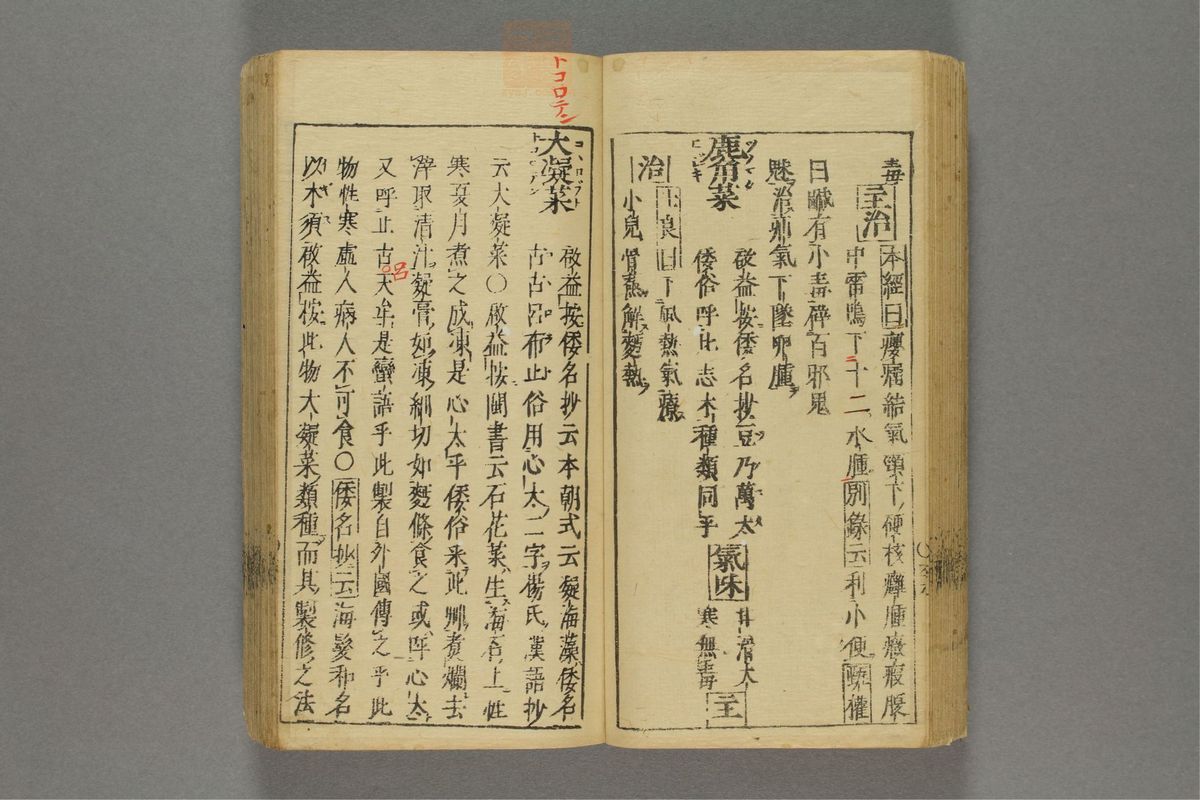 毒
主治
本經曰癭瘤結氣頸下硬核癰腫癥瘕腹
中雷鳴下十二水腫別錄云利小便甄權
曰鹹有小毒碎百邪鬼
魅治疝氣下墜卵腫
鹿角菜
啟益按倭名抄豆乃萬太
倭俗呼比志木種類同乎
氣味
甘滑大
寒無毒
主
治
士良曰下風熱氣療
小兒骨蒸解麵熱
トコロテン
大凝菜
啟益按倭名抄云本朝式云凝海藻倭名
古古呂布止俗用心太二字楊氏漢語抄
云大凝菜〇啟益按閩書云石花菜生海石上性
寒夏月煮之成凍是心太乎倭俗采此州煮爛去
滓取清汁凝膏如凍細切如麵條食之或呼心太
又呼止古呂天牟是蠻語乎此製自外國傳之乎此
物性寒虛人病人不可食〇倭名抄云海髮和名
以木須啟益按此物大凝菜類種而其製修之法